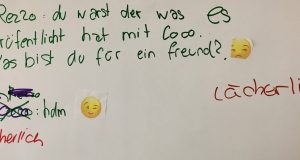 Rezzo: du warst der was es
röfentlicht hat mit Coco.
was bist du für ein freund?.
Lächerli
: hdm
herlich